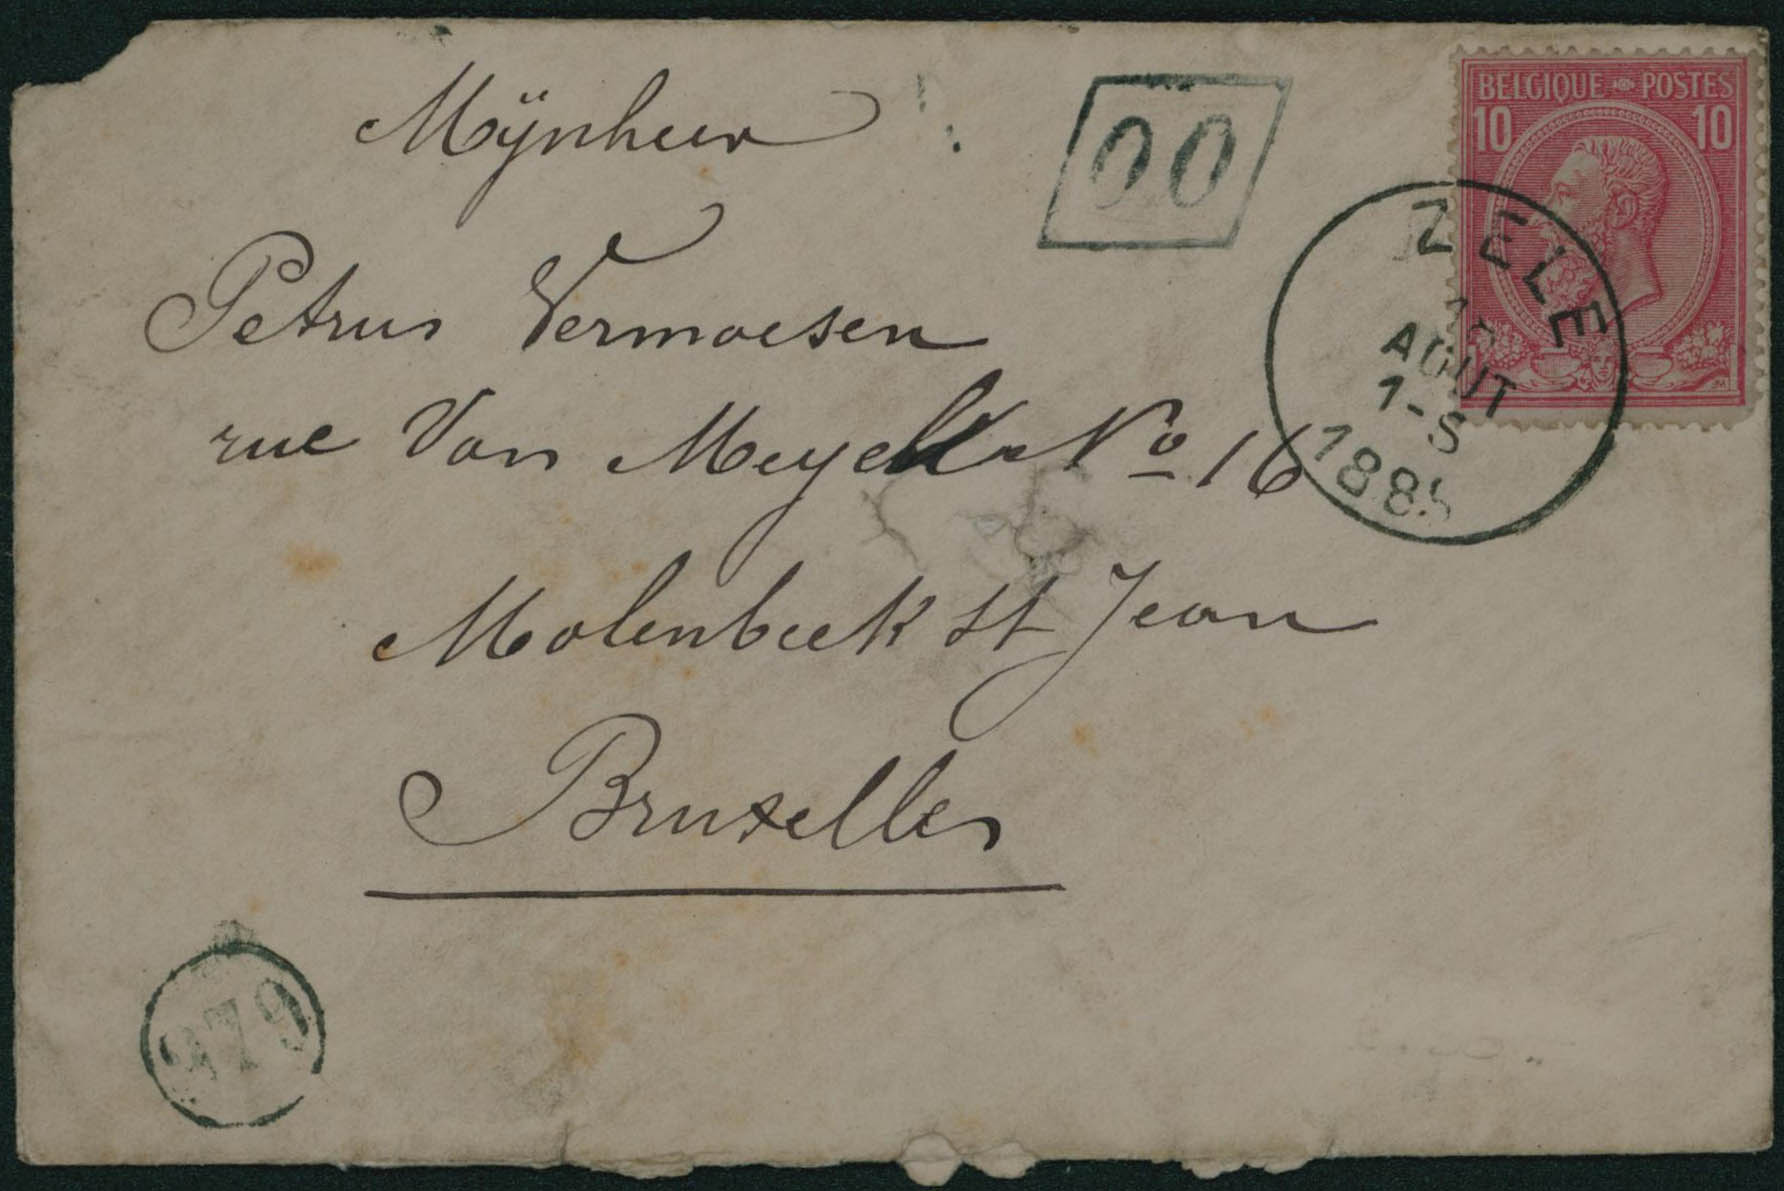 BELGIQUE POSTES
10 10
00
Mÿnheer
Petrus Vermoesen
rue Van Meyel No 16
Molenbeek st Jean
Bruxelles
ZELE
AOUT
1-S
1885
379